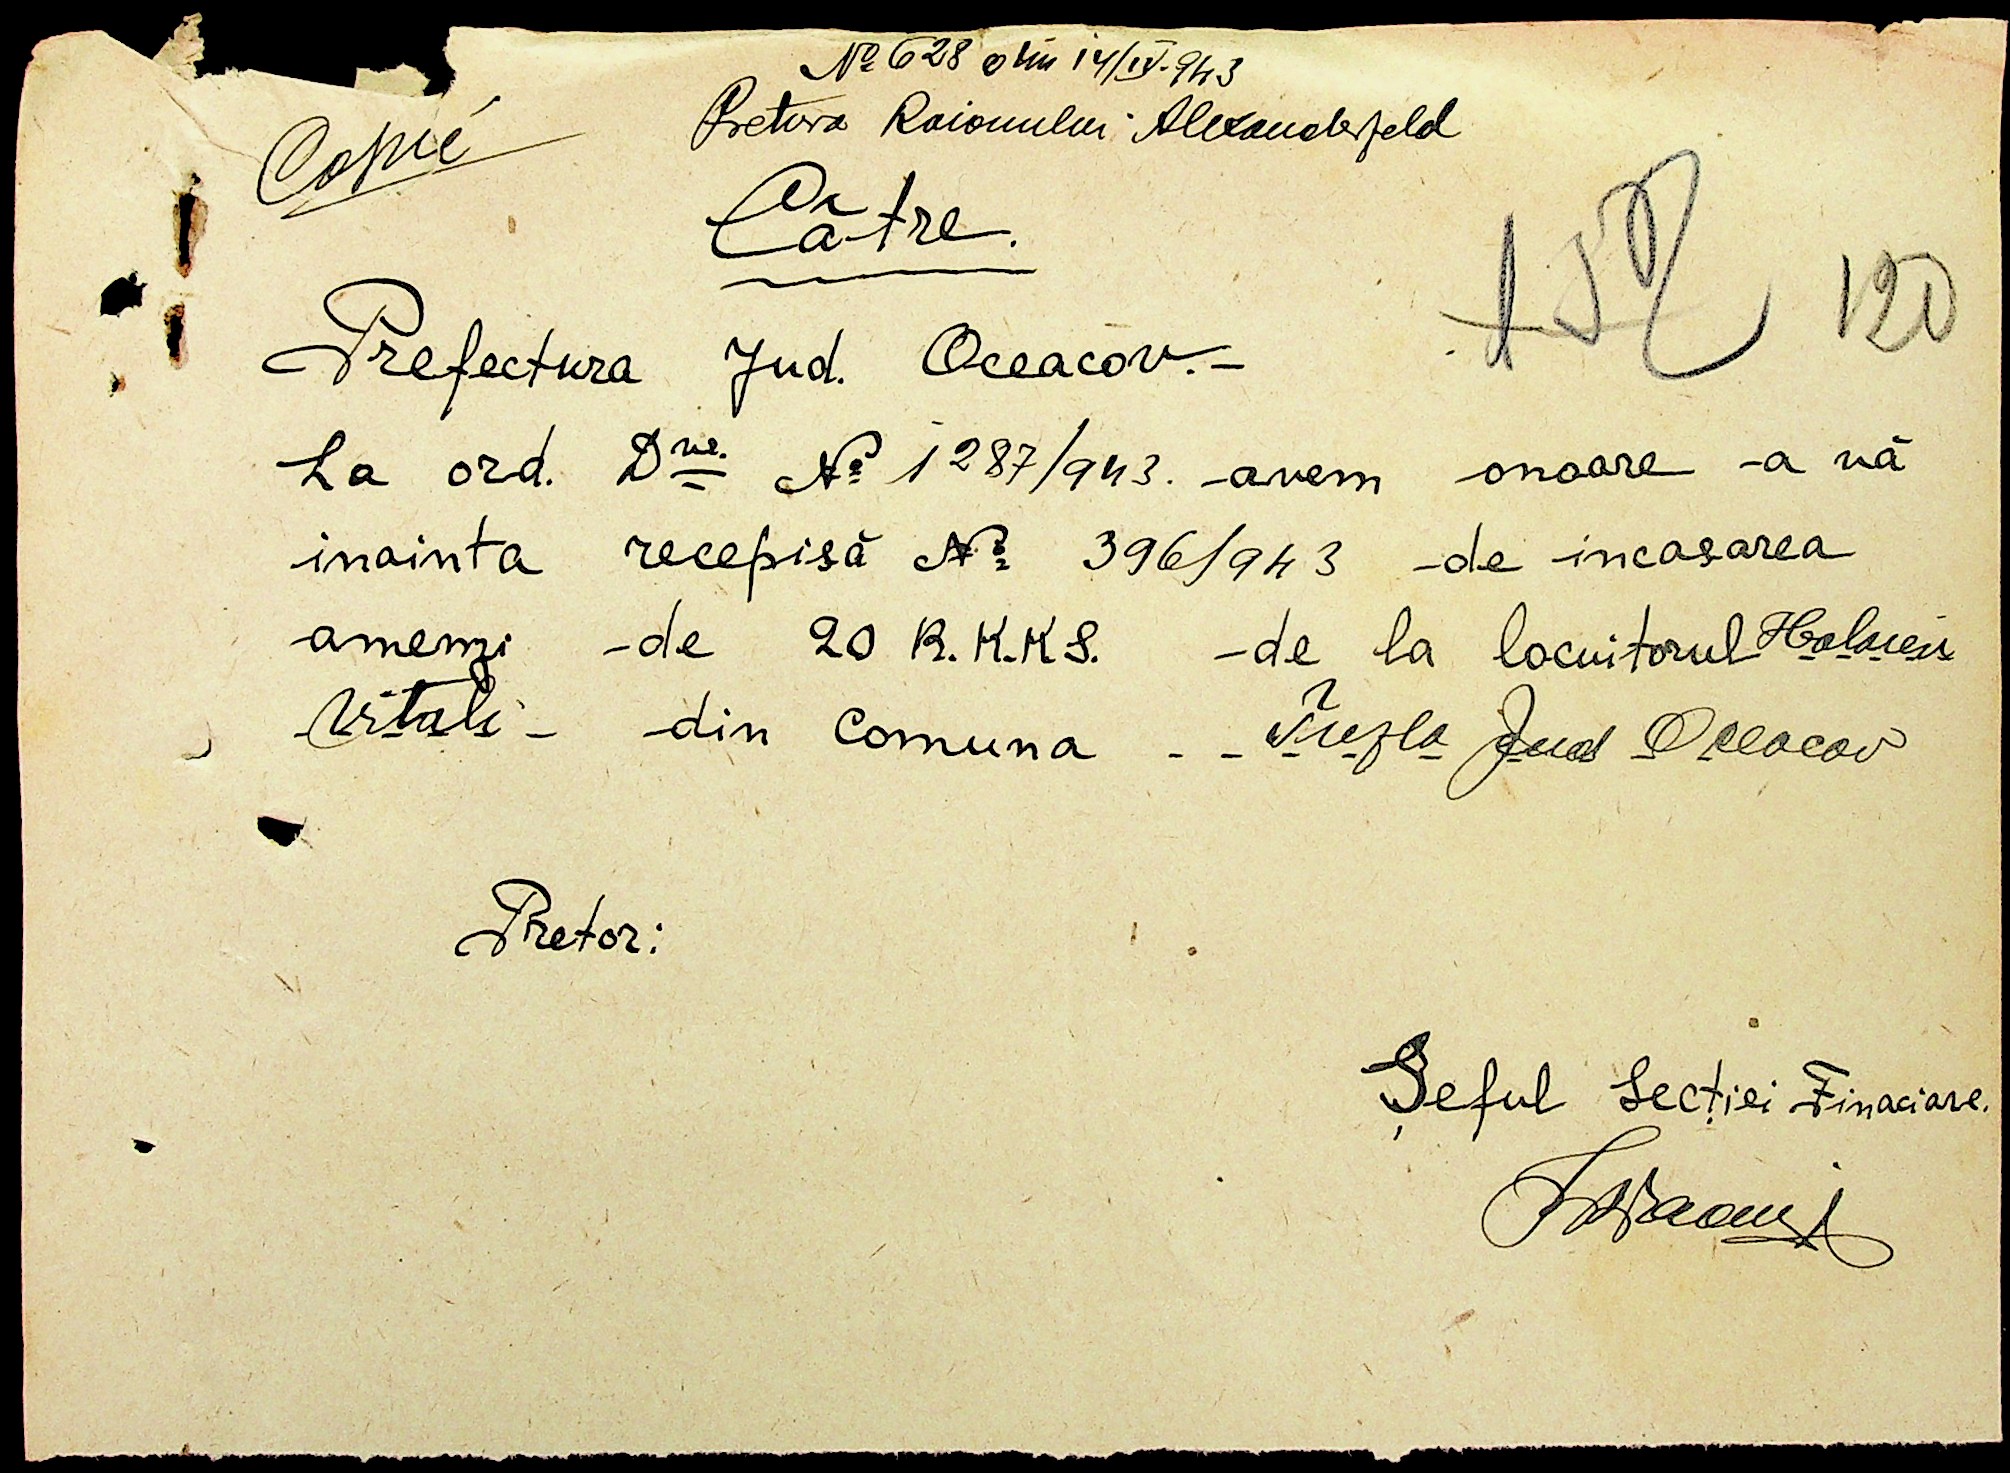 No 628 din 14/IV.943
Copie
Pretura Raionului Alexanderfeld
Către.
120
Prefectura Jud. Oceacov.-
La ord. Dvs. No 1287/943. avem onoare a vă
inainta recepisă No 396/943 de incasarea
amenzi de 20 R.K.K.S. de la locuitorul
Vitali - din Comuna - - Tuzla Jud Oceacov
Pretor:
Șeful Secției Finaciare.